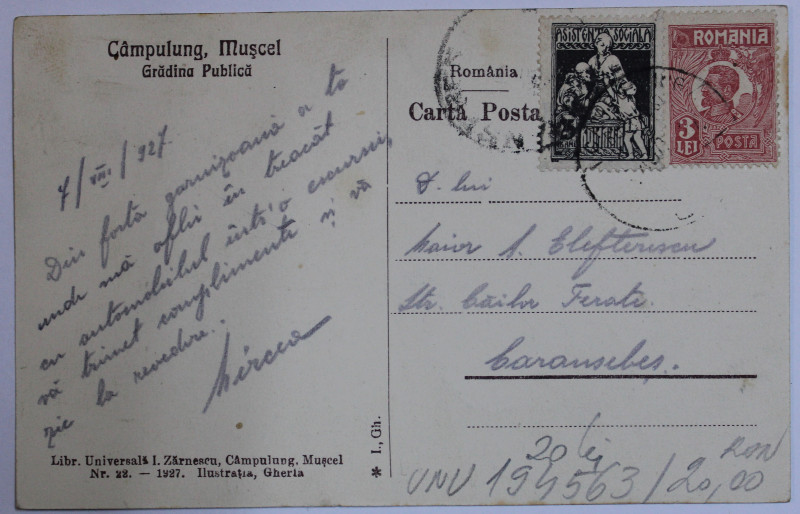 Câmpulung, Mușcel
Grădina Publică
7/VIII/927.
Din fosta garnizoană a ta
unde mă aflu în treacăt
cu automobilul într'o excursie,
vă trimet complimente și vă
zic la revedere..
Mircea
Libr. Universală I. Zărnescu, Câmpulung, Mușcel
Nr. 28. — 1927. Ilustrația, Gherla
* I., Gh.
România
Carta Posta
ASISTENȚA SOCIALA
ROMANIA
3
LEI
POSTA
D-lui
Maior A. Elefterescu
Str. Căilor Ferate.
Caransebeș.
20 lei
UNU 194563/20,00 RON